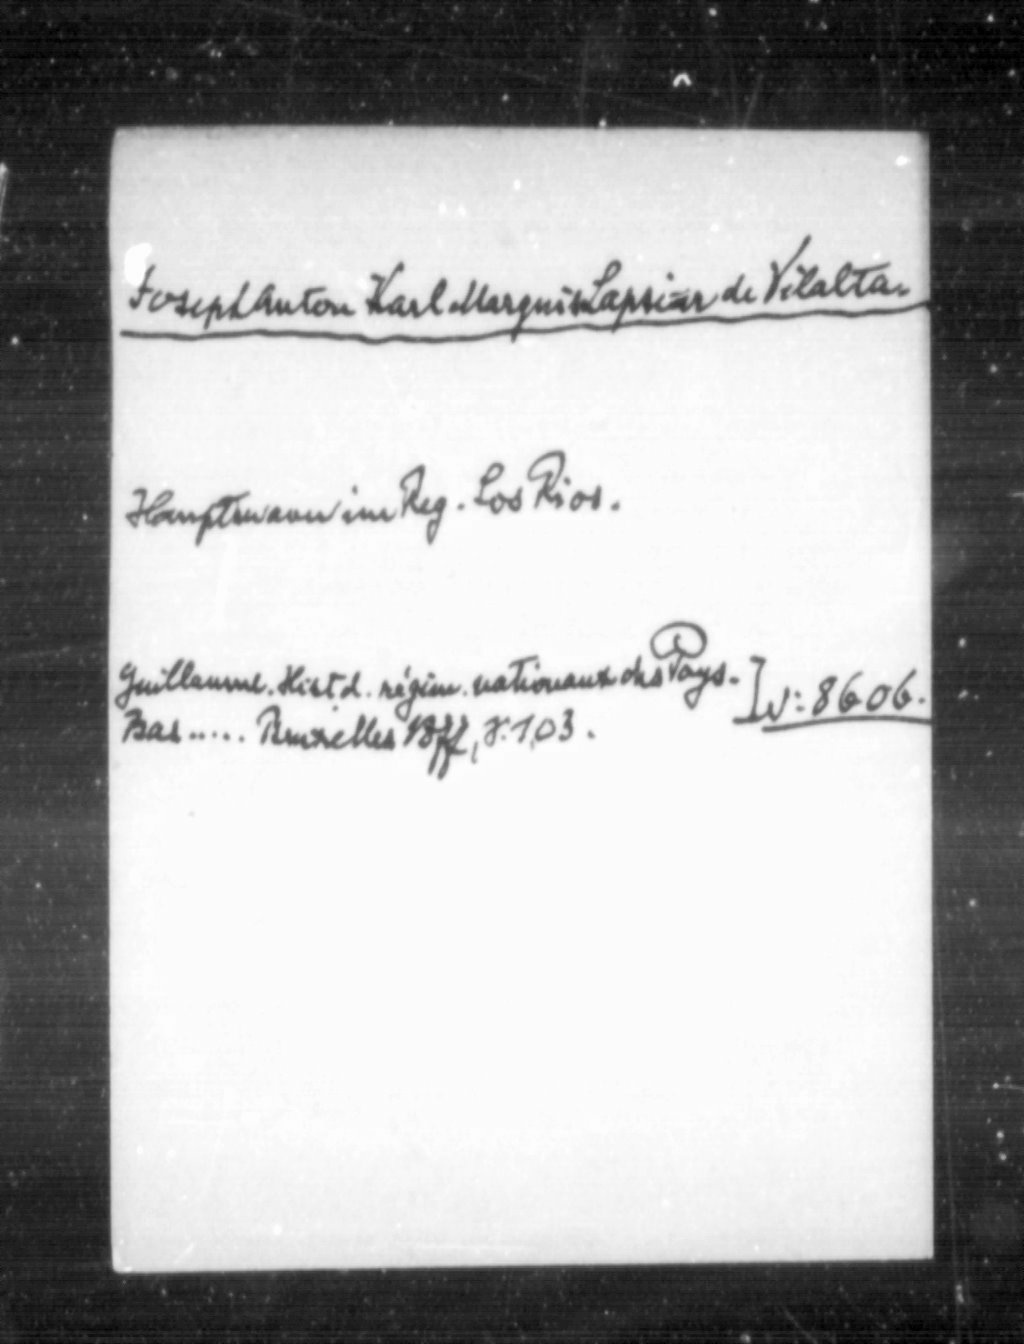 Joseph Anton Karl Marquis Lapsizar de Vilalta.
Hauptmann im Reg. Los Rios.
Guillaume. Hist d. régim. nationaux des Pays-
Bas..... Bruxelles 1877, S. 103. ] N: 8606.